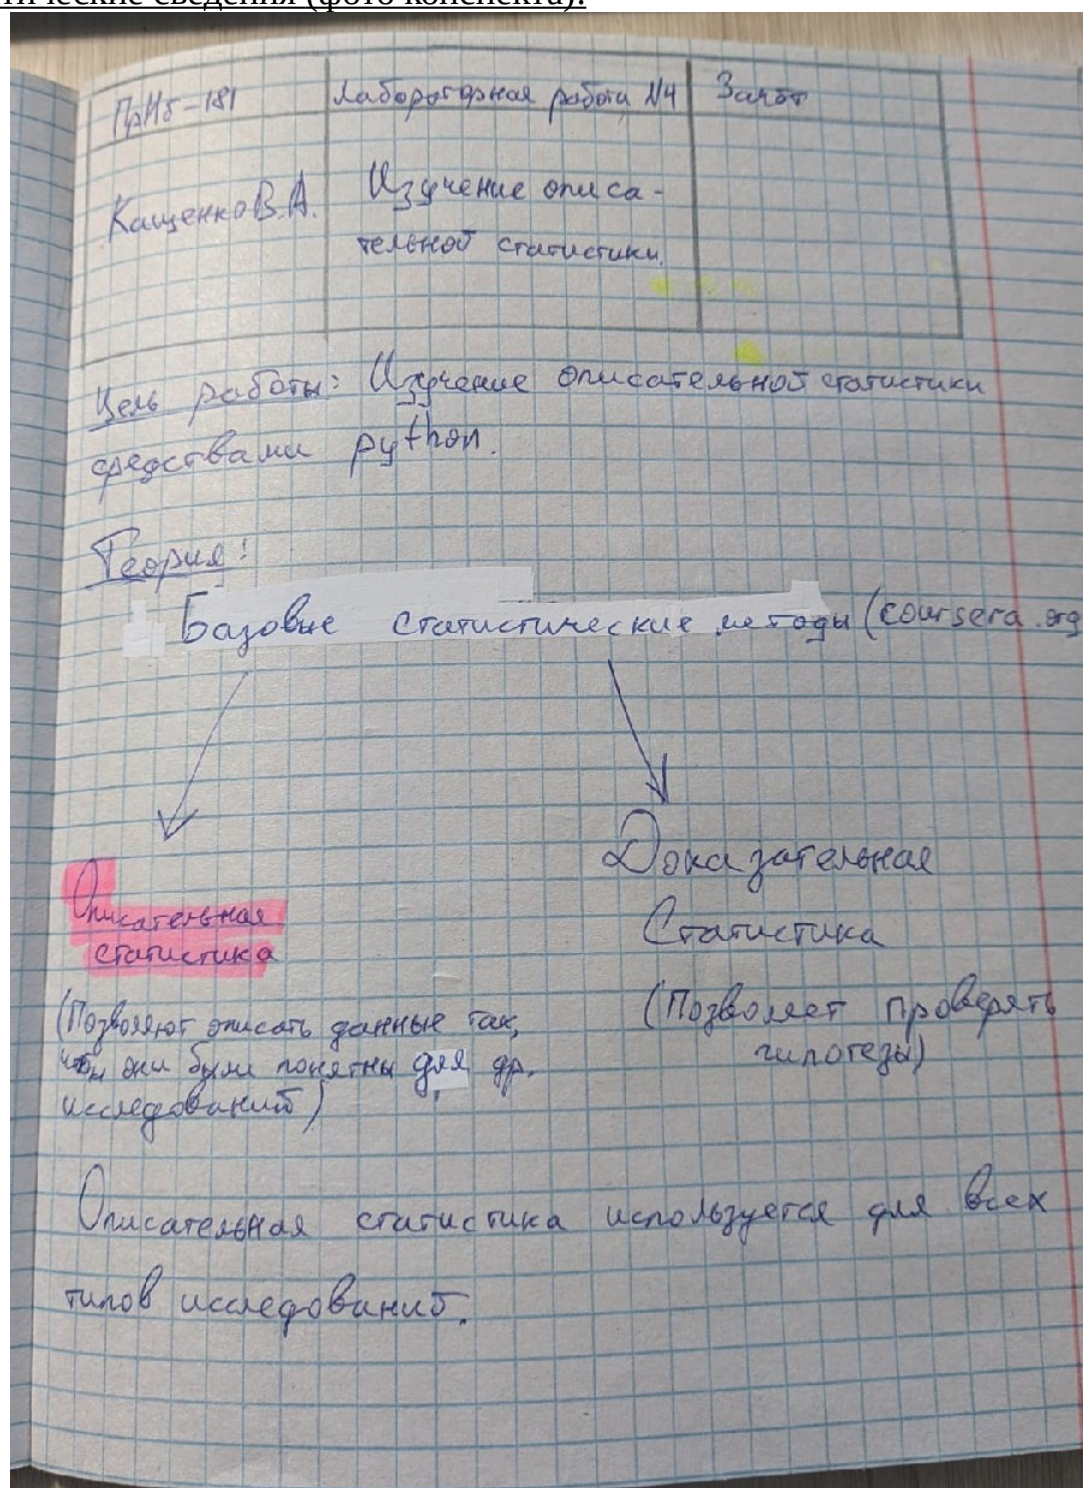 тические сведения (фото конспекта):
ПрИб-181 Лабораторная работа №4 Зачёт
Кащенко В.А. Изучение описа-
тельной статистики.
Цель работы: Изучение описательной статистики
средствами python.
Теория:
Базовые статистические методы (coursera.org
Описательная
статистика
Доказательная
Статистика
(Позволяют описать данные так,
чтобы они были понятны для др.
исследований)
(Позволяет проверять
гипотезы)
Описательная статистика используется для всех
типов исследований.